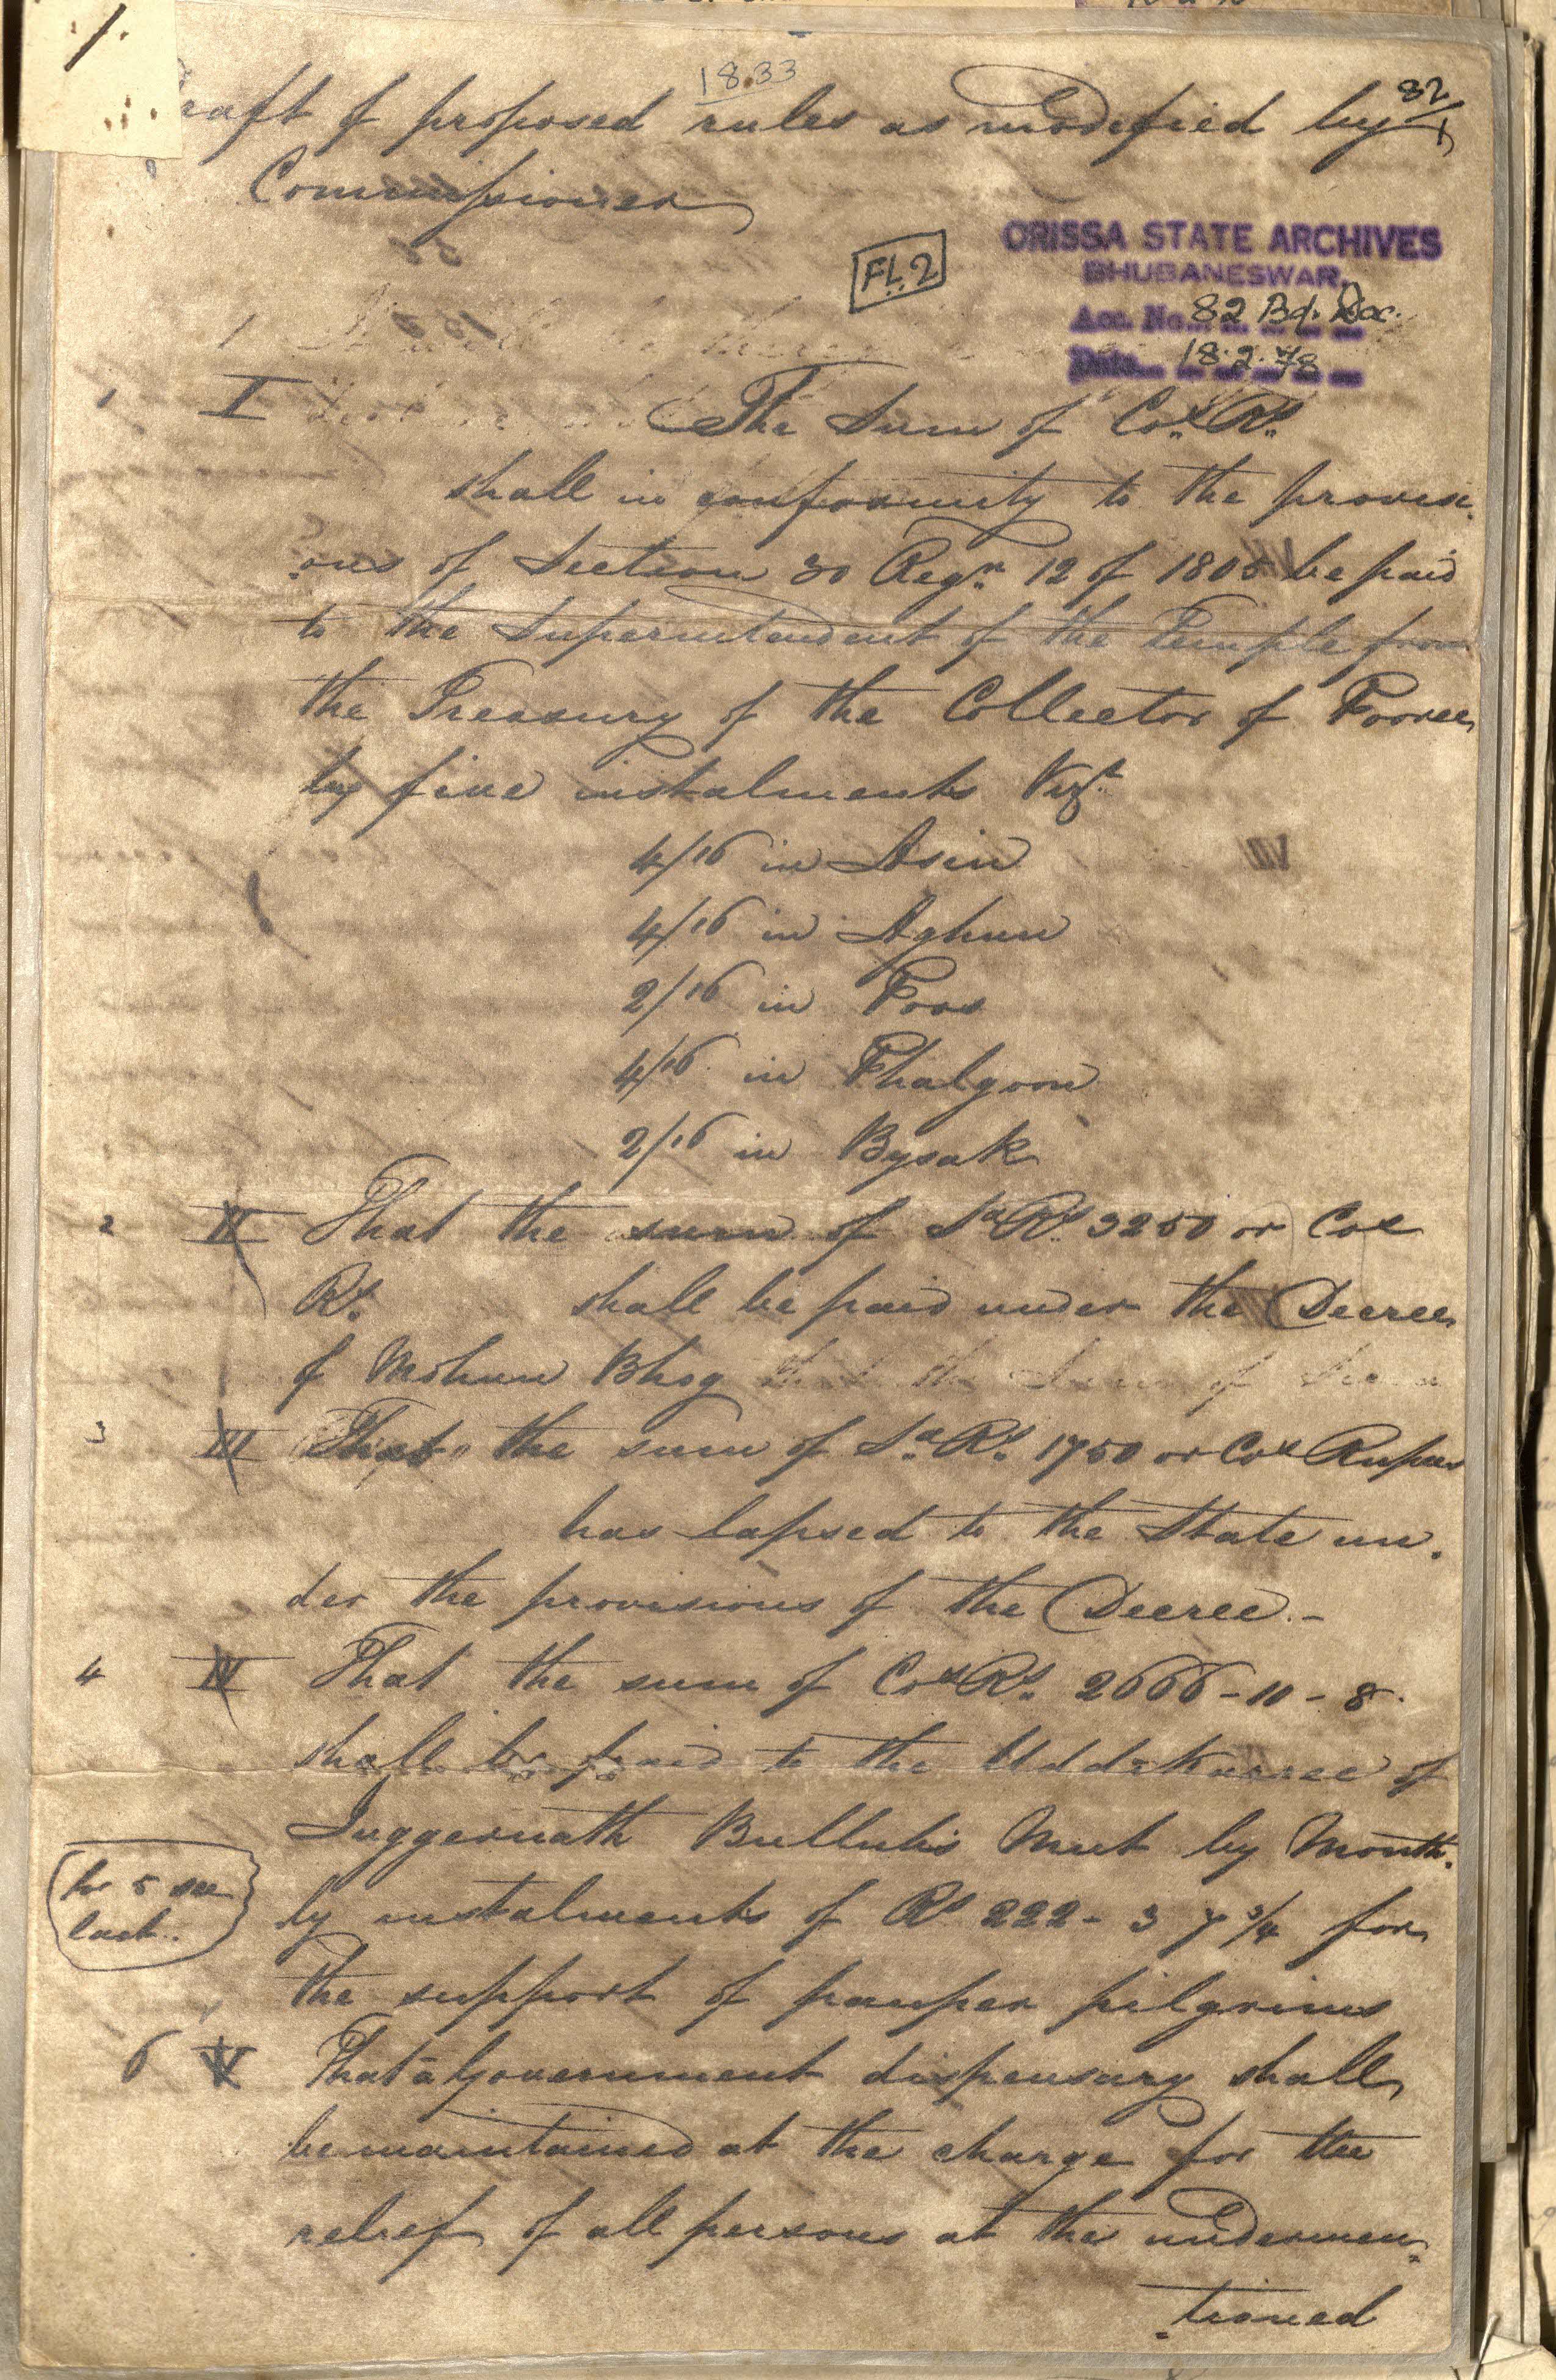 1.
1833
32/1
raft of proposed rules as modified by
Commissioner
FL.2
ORISSA STATE ARCHIVES
BHUBANESWAR.
Acc. No. 82 Bd. Doc.
Date 18.2.78
1 I The Sum of Cos. Rs.
shall in conformity to the provisi-
ons of Section 30 Regn. 12 of 1805 be paid
to the Superintendent of the Temple from
the Treasury of the Collector of Pooree
by five instalments Vizt.
4/16 in Asin
4/16 in Aghun
2/16 in Poos
4/16 in Phalgoon
2/16 in Bysak
2 II That the sum of Sa. Rs. 3250 or Cos
Rs. shall be paid under the Decree
of Mohun Bhog
3 III That the sum of Sa. Rs. 1750 or Cos Rupees
has lapsed to the State un-
der the provisions of the Decree.-
4 IV That the sum of Cos Rs. 2666-10-8.
shall be paid to the Uddikaree of
Juggernath Bullub's Mut by Month-
for 5 see
last.
ly instalments of Rs 222-3 7 3/4 for
the support of pauper pilgrims
6 V That a Government dispensary shall
be maintained at the charge for the
relief of all persons at the undermen-
-tioned